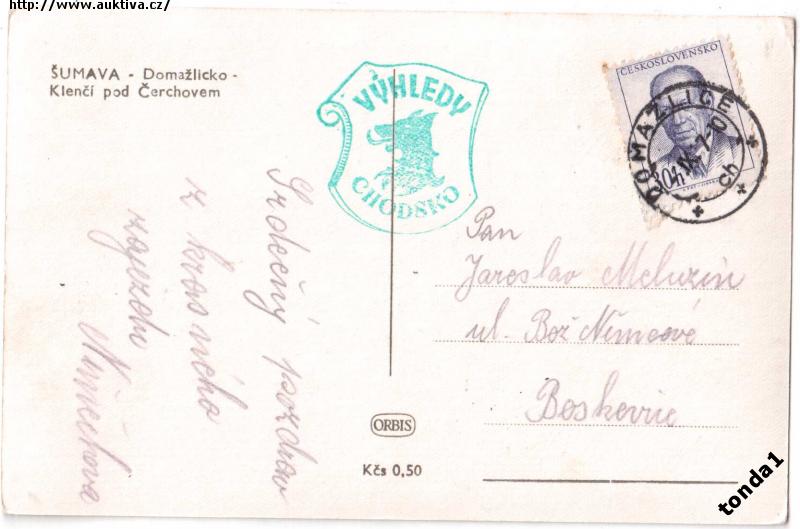 http://www.auktiva.cz/
ŠUMAVA - Domažlicko -
Klenčí pod Čerchovem
VÝHLEDY
CHODSKO
ČESKOSLOVENSKO
30h
DOMAŽLICE
Srdečný pozdrav
z krásného
zájezdu
Pan
Jaroslav Meluzin
ul. Bož Němcové
Boskovic
ORBIS
Kčs 0,50
tonda1